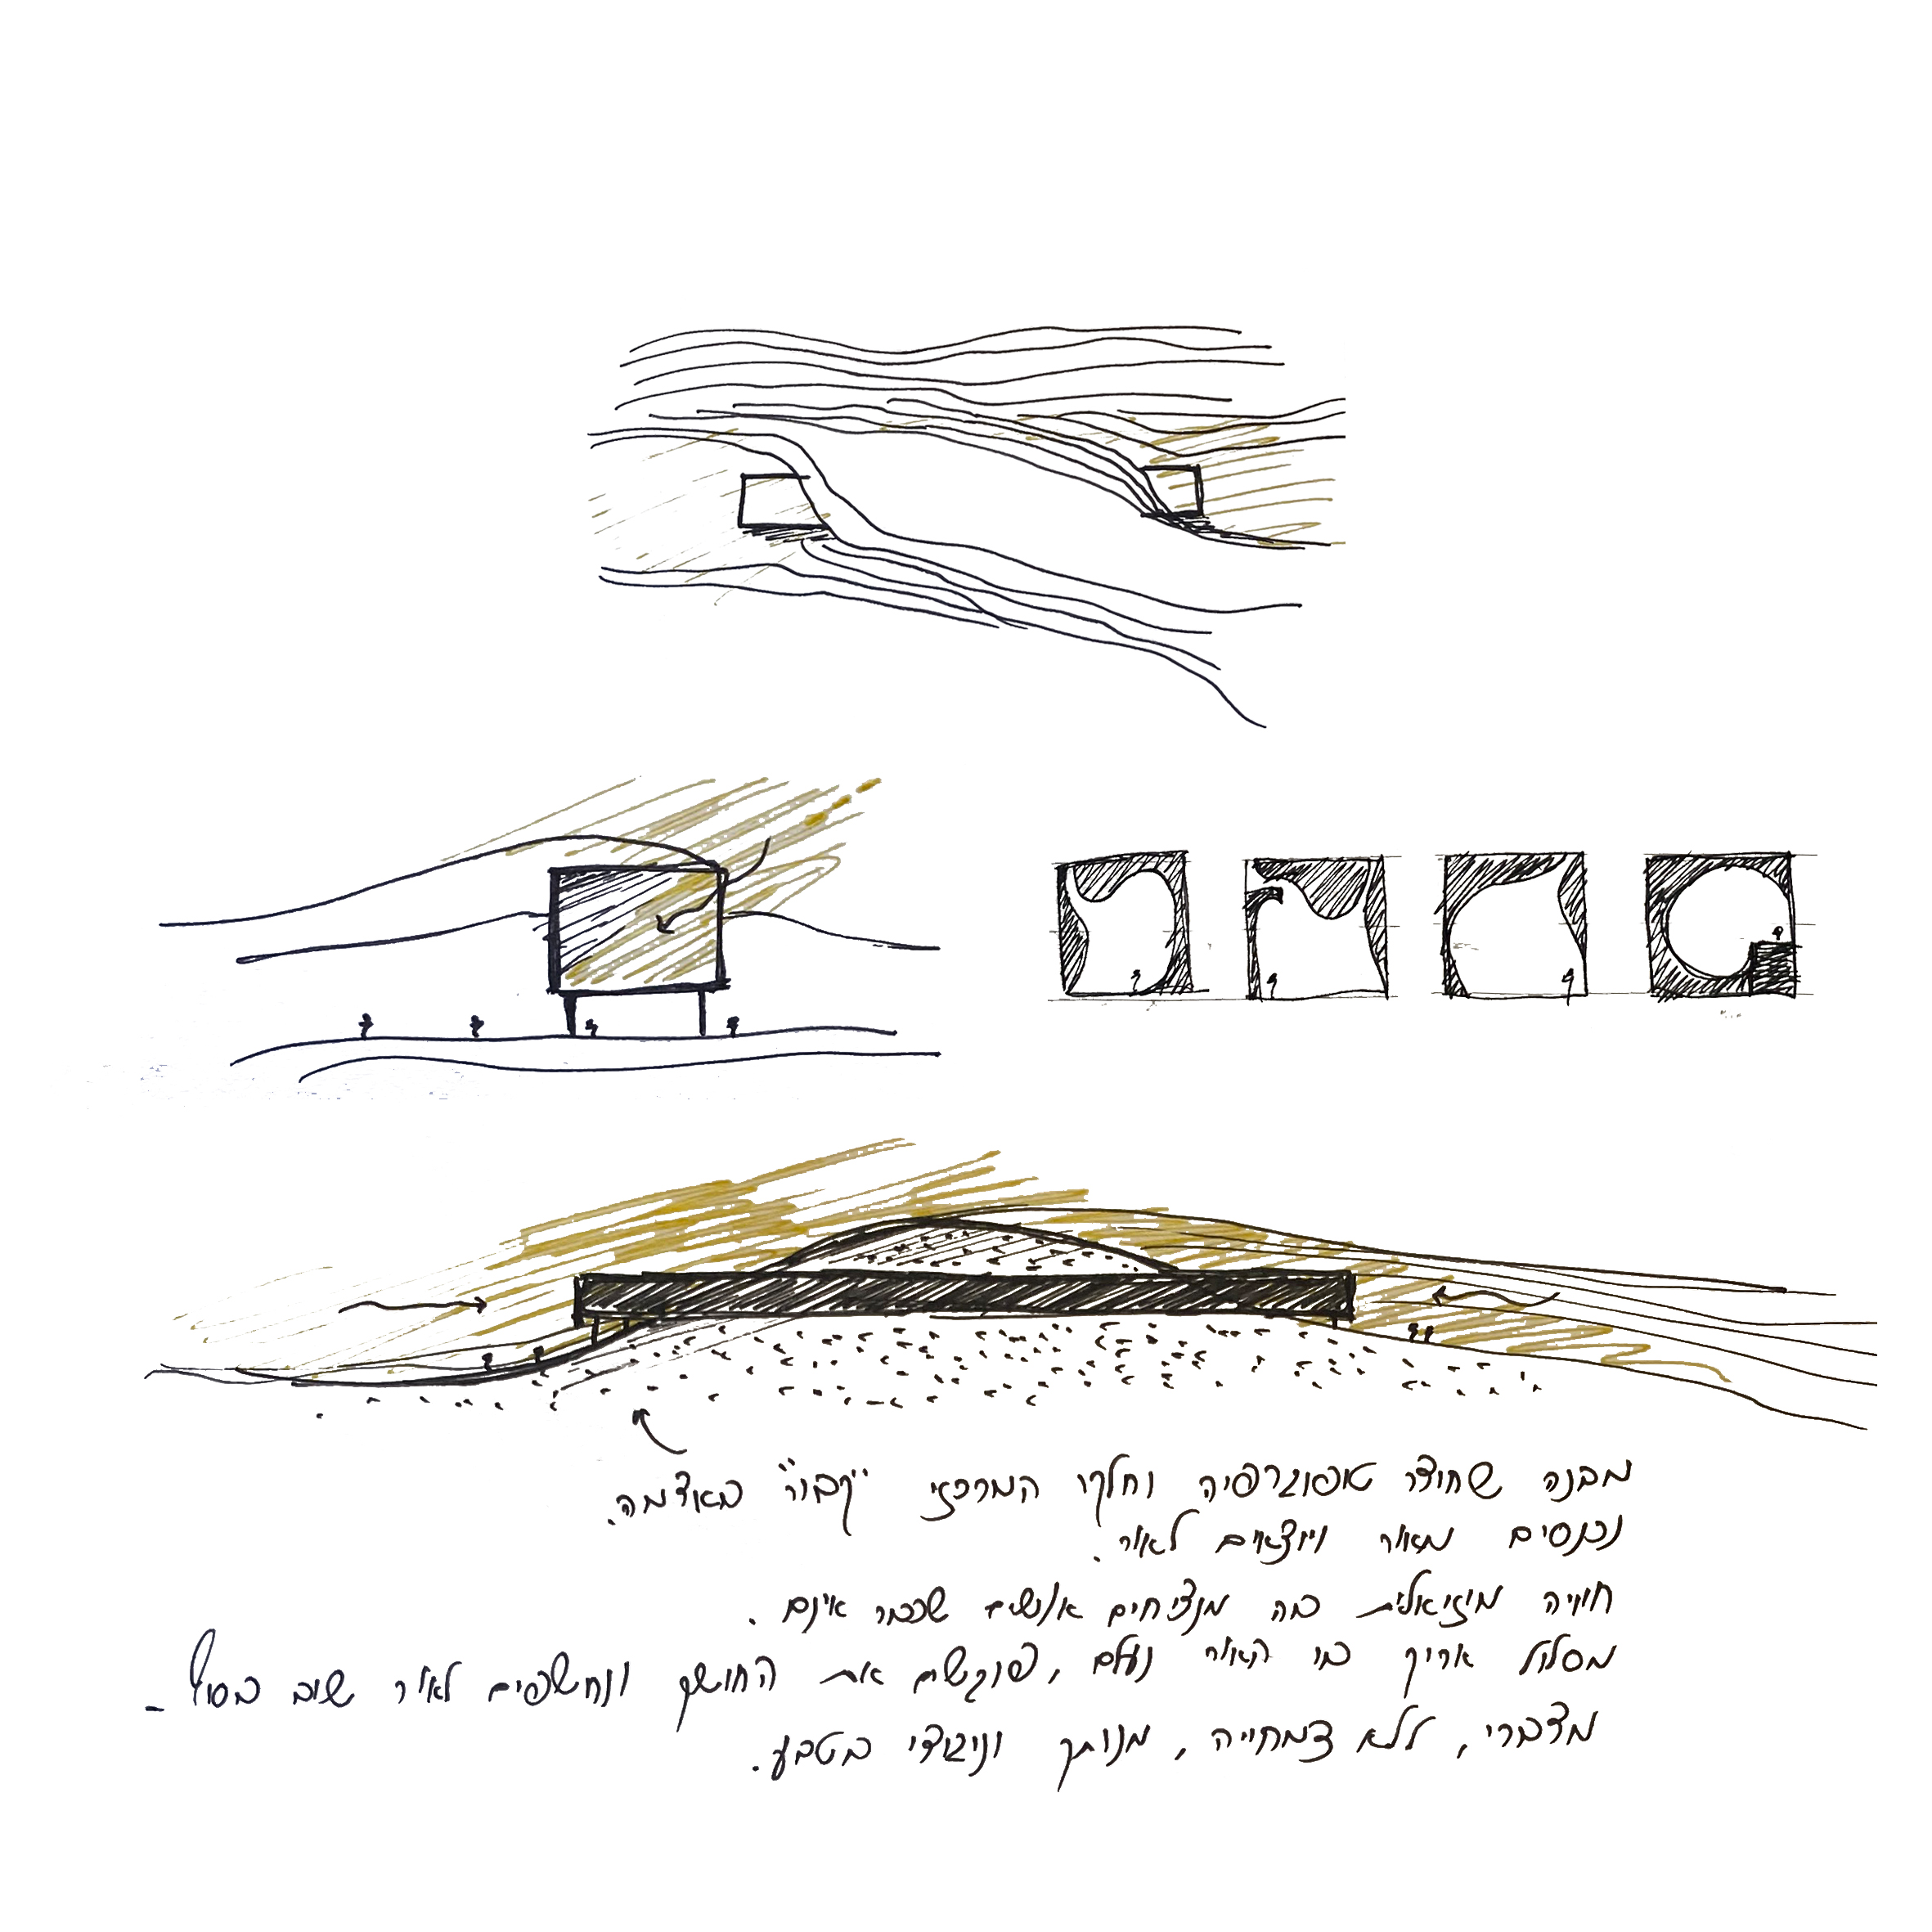 מבנה שחודר טופוגרפיה וחלקו המרכזי "קבור" באדמה.
נכנסים מאור ויוצאים לאור.
חוויה מוזיאלית בה מנציחים אנשים שכבר אינם.
מסלול ארוך בו האור נעלם, פוגשים את החושך ונחשפים לאור שוב בסוף -
מדברי, ללא צמחייה, מנותק וניגודי בטבע.